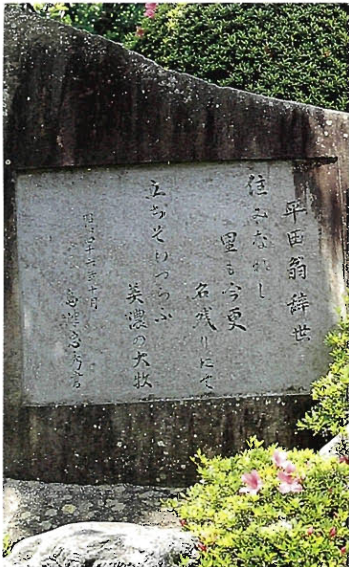 平田翁辞世
住みなれし
里も今更
名残りにて
立ちそわつらふ
美濃の大牧
十月
島津忠秀書